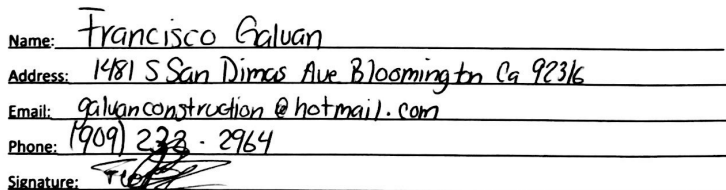 Name: Francisco Galvan
Address: 1481 S San Dimas Ave Bloomington Ca 92316
Email: galvanconstruction@hotmail.com
Phone: (909) 2964
Signature: